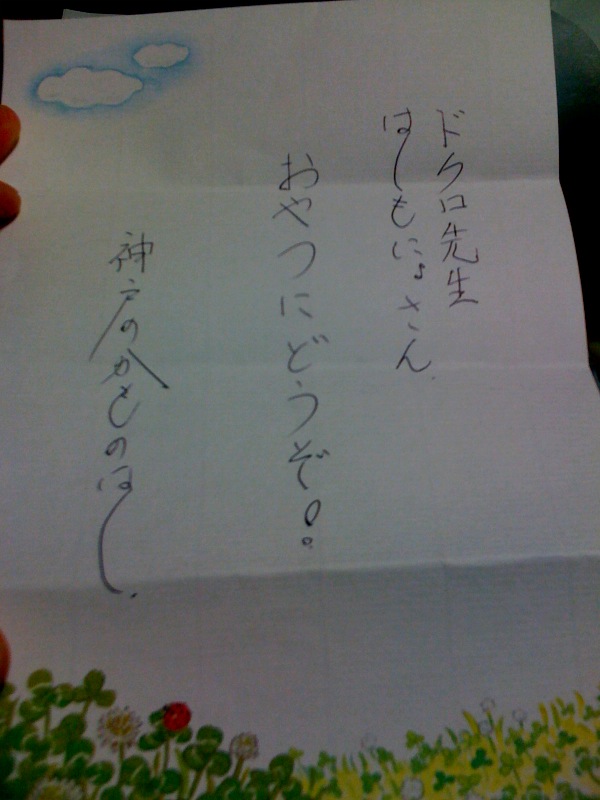 ドクロ先生
はしもにょさん
おやつにどうぞ!。
神戸のかものはし.